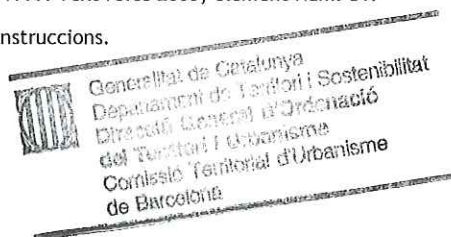 nstruccions.
Generalitat de Catalunya
Departament de Territori i Sostenibilitat
Direcció General d'Ordenació
del Territori i Urbanisme
Comissió Territorial d'Urbanisme
de Barcelona